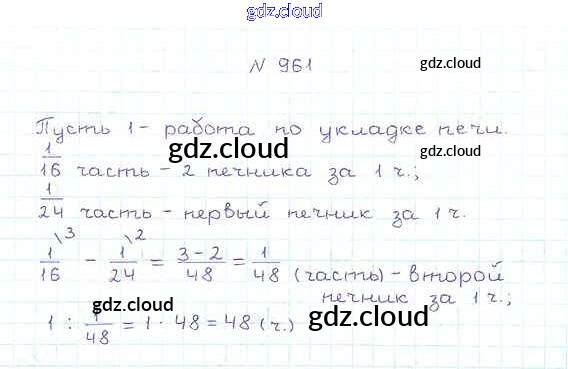 gdz.cloud
N 961 gdz.cloud
Пусть 1 - работа по укладке печи.
gdz.cloud gdz.cloud
1/16 часть - 2 печника за 1 ч.;
1/24 часть - первый печник за 1 ч.
1/16 \3 - 1/24 \2 = 3-2/48 = 1/48 (часть) - второй
печник за 1 ч.;
gdz.cloud gdz.cloud
1 : 1/48 = 1 · 48 = 48 (ч.)